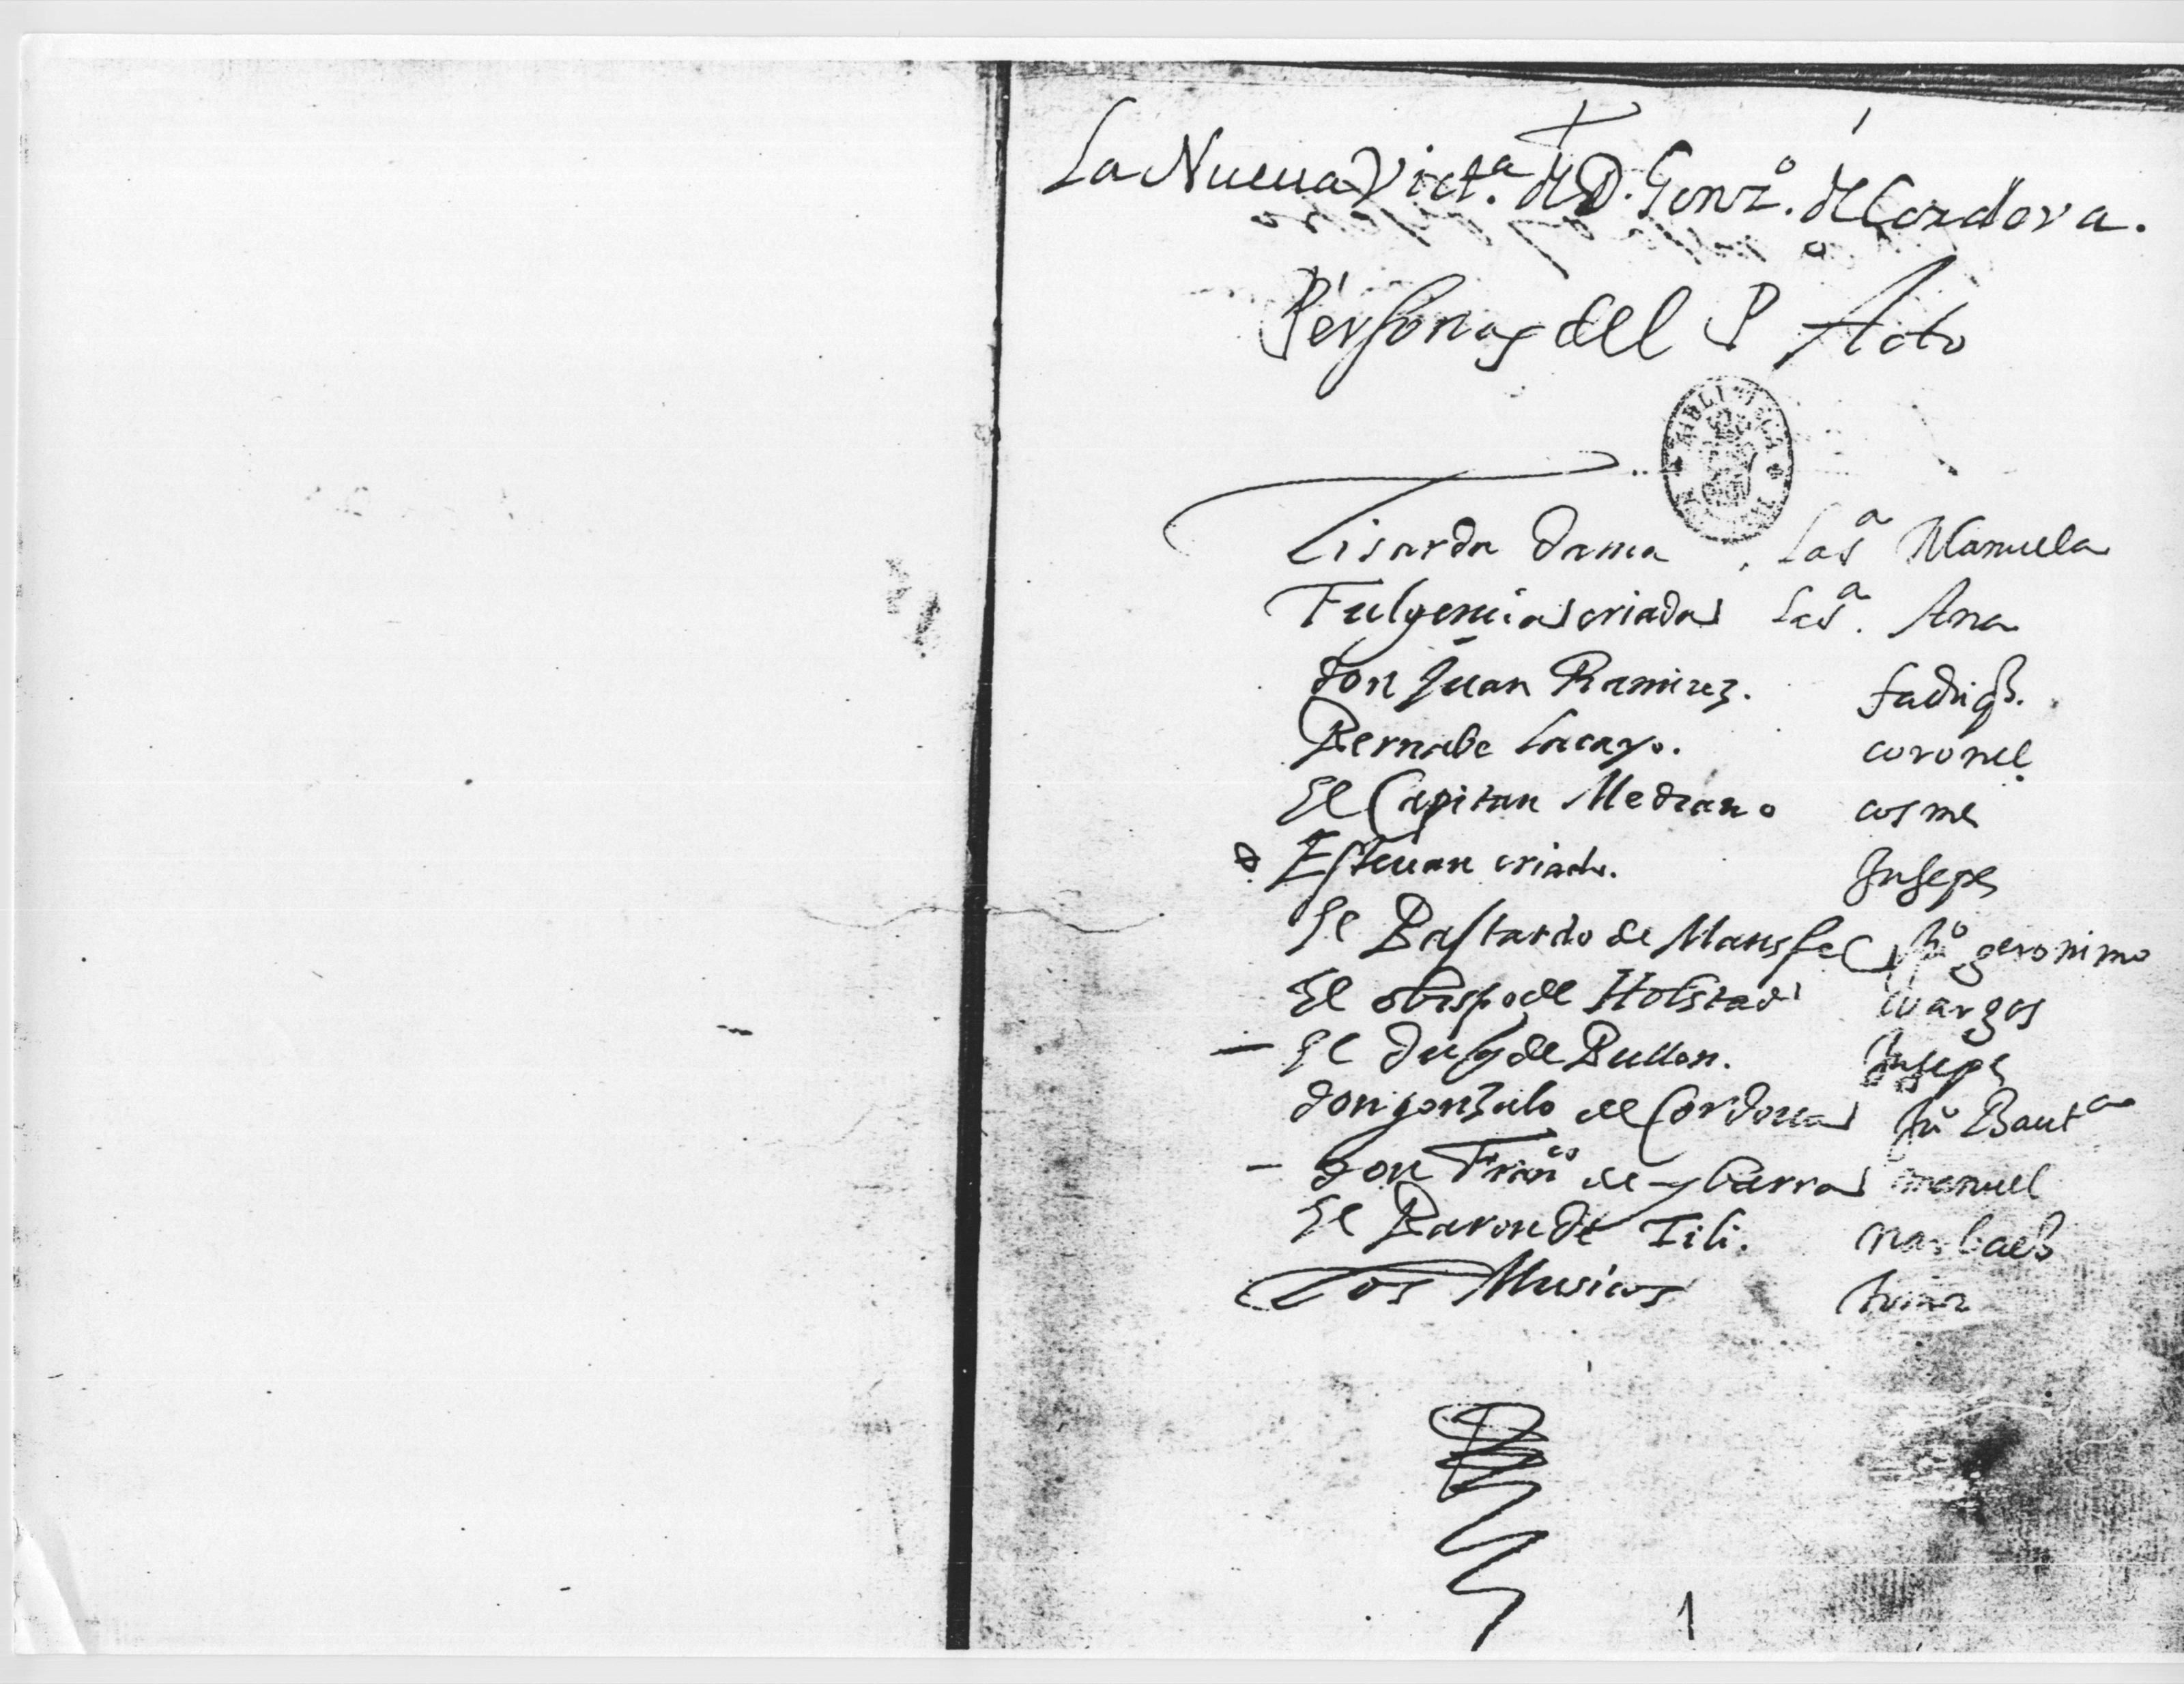 La Nueua Vict.ª de D. Gonz.º de Cordova.
Personas del P.º Acto
BIBLIOTECA
Lisarda dama la s.ª Manuela
Fulgencia criada la s.ª Ana
don Juan Ramirez. fadriq.
Bernabe lacayo. coronel
El Capitan Medrano cosme
Esteuan criado. Jusepe
El Bastardo de Mansfel Ju.º geronimo
El obispo de Holstad Vargas
El duq de Bullon. Jusepe
don gonzalo de Cordoua Ju.º Baut.ª
don Fran.co de ybarra manuel
El Baron de Tili. narbaez
Los Musicos
1